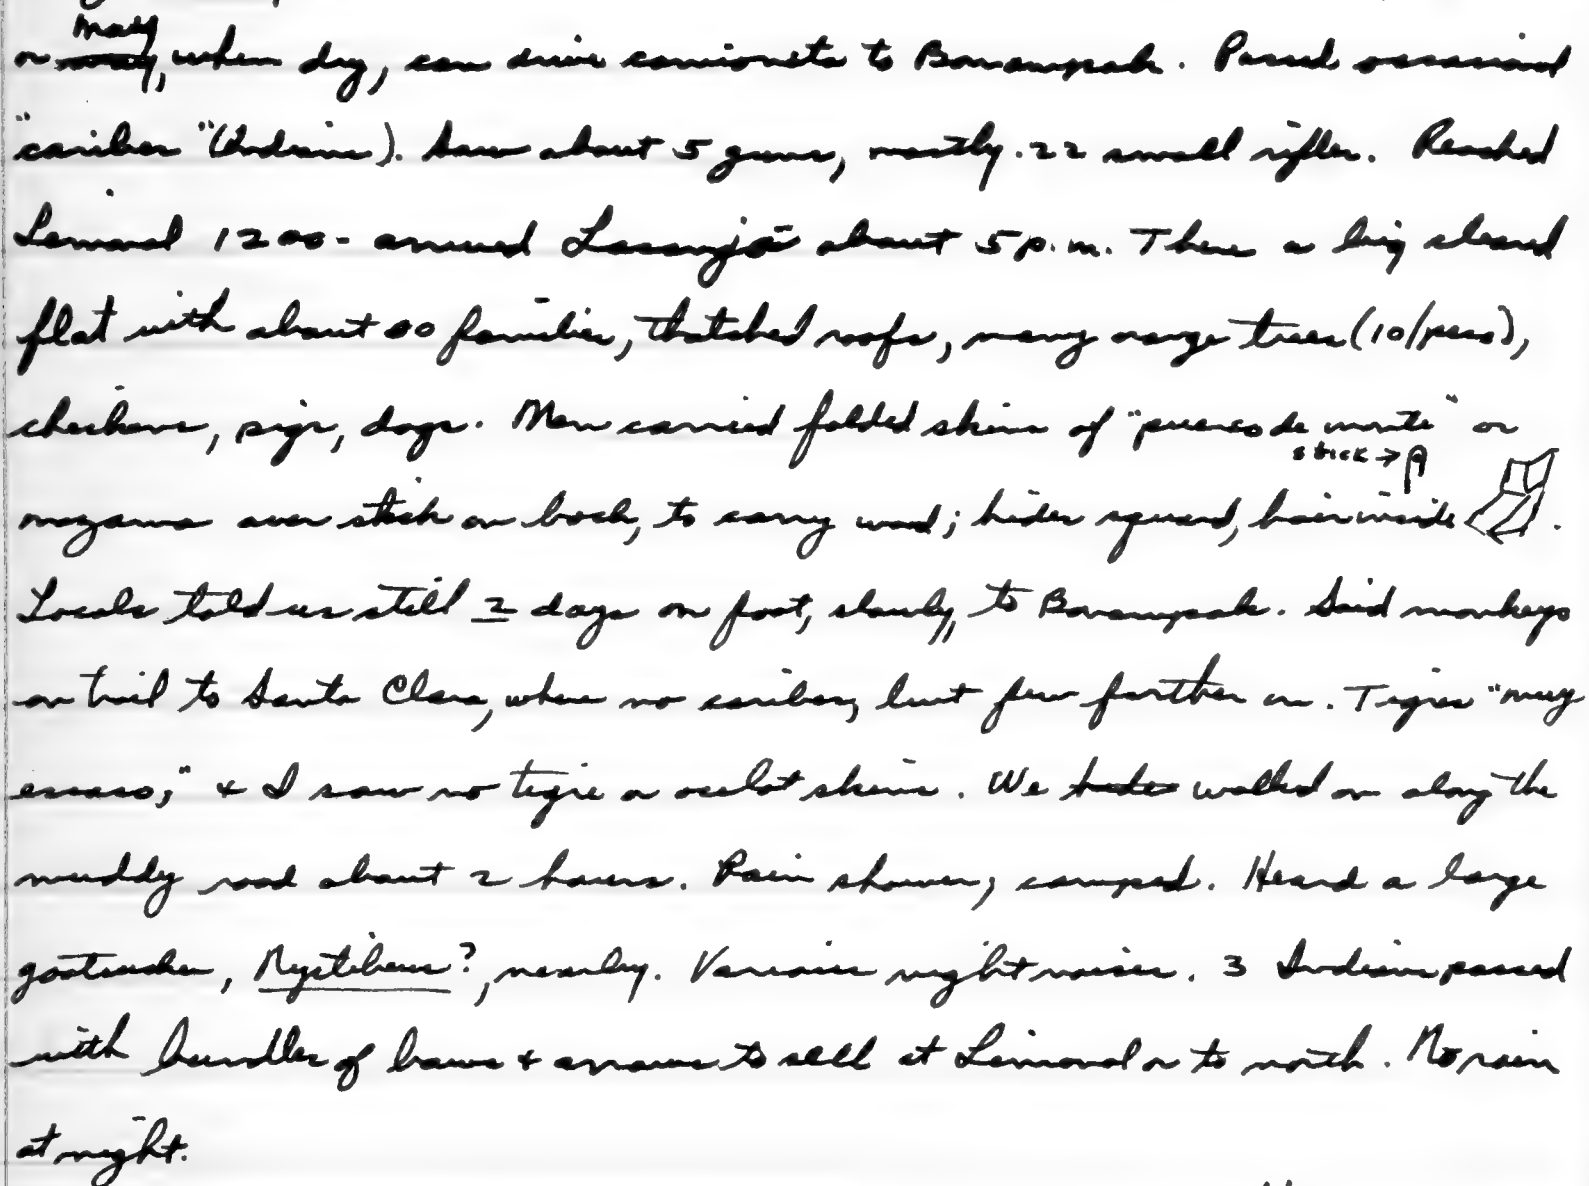 or May, when dry, can drive camioneta to Bonampak. Passed occasional
"caribes" (Indians). Saw about 5 guns, mostly .22 small rifles. Reached
Limonal 1200 - arrived Lacanjá about 5 p.m. There a big cleared
flat with about families, thatched roofs, many orange trees (10/peso),
chickens, pigs, dogs. Men carried folded skins of "puerco de monte" or
stick → 
mazama over stick on back, to carry wood; hides squared, hair inside .
Locals told us still 2 days on foot, slowly, to Bonampak. Said monkeys
on trail to Santa Clara, where no caribes, but few farther on. Tigres "muy
escaso," & I saw no tigre or ocelot skins. We walked on along the
muddy road about 2 hours. Rain shower, camped. Heard a large
goatsucker, Nyctibius?, nearby. Various night noises. 3 Indians passed
with bundles of bows & arrows to sell at Limonal or to north. No rain
at night.